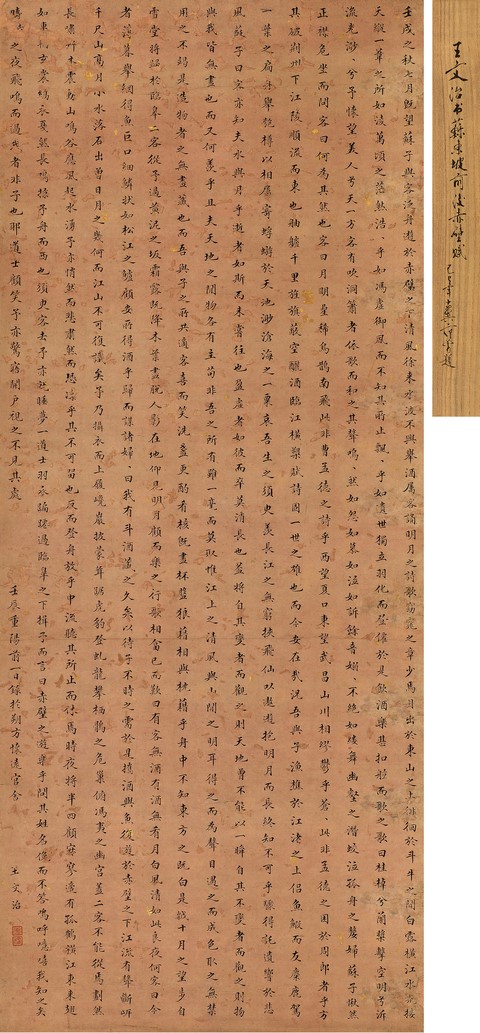 王文治书蘇東坡前後赤壁賦
壬戌之秋七月既望蘇子與客泛舟遊於赤壁之下清風徐來水波不興舉酒屬客誦明月之詩歌窈窕之章少焉月出於東山之上徘徊於斗牛之間白露橫江水光接
天縱一葦之所如凌萬頃之茫然浩〻乎如馮虛御風而不知其所止飄〻乎如遺世獨立羽化而登僊於是飲酒樂甚扣舷而歌之歌曰桂棹兮蘭槳擊空明兮泝
流光渺〻兮予懷望美人兮天一方客有吹洞簫者依歌而和之其聲嗚〻然如怨如慕如泣如訴餘音嫋〻不絕如縷舞幽壑之潛蛟泣孤舟之嫠婦蘇子愀然
正襟危坐而問客曰何為其然也客曰月明星稀烏鵲南飛此非曹孟德之詩乎西望夏口東望武昌山川相繆鬱乎蒼〻此非孟德之困於周郎者乎方
其破荊州下江陵順流而東也舳艫千里旌旗蔽空釃酒臨江橫槊賦詩固一世之雄也而今安在哉況吾與子漁樵於江渚之上侶魚鰕而友麋鹿駕
一葉之扁舟舉匏樽以相屬寄蜉蝣於天地渺滄海之一粟哀吾生之須臾羨長江之無窮挾飛仙以遨遊抱明月而長終知不可乎驟得託遺響於悲
風蘇子曰客亦知夫水與月乎逝者如斯而未嘗往也盈虛者如彼而卒莫消長也蓋將自其變者而觀之則天地曾不能以一瞬自其不變者而觀之則物
與我皆無盡也而又何羨乎且夫天地之間物各有主苟非吾之所有雖一毫而莫取惟江上之清風與山間之明月耳得之而為聲目遇之而成色取之無禁
用之不竭是造物者之無盡藏也而吾與子之所共適客喜而笑洗盞更酌肴核既盡杯盤狼藉相與枕藉乎舟中不知東方之既白是歲十月之望步自
雪堂將歸於臨皋二客從予過黃泥之坂霜露既降木葉盡脫人影在地仰見明月顧而樂之行歌相答已而歎曰有客無酒有酒無肴月白風清如此良夜何客曰今
者薄暮舉網得魚巨口細鱗狀如松江之鱸顧安所得酒乎歸而謀諸婦〻曰我有斗酒藏之久矣以待子不時之需於是攜酒與魚復遊於赤壁之下江流有聲斷岸
千尺山高月小水落石出曾日月之幾何而江山不可復識矣予乃攝衣而上履巉巖披蒙茸踞虎豹登虬龍攀栖鶻之危巢俯馮夷之幽宮蓋二客不能從焉劃然
長嘯草木震動山鳴谷應風起水湧予亦悄然而悲肅然而恐凜乎其不可留也反而登舟放乎中流聽其所止而休焉時夜將半四顧寂寥適有孤鶴橫江東來翅
如車輪玄裳縞衣戛然長鳴掠予舟而西也須臾客去予亦就睡夢一道士羽衣蹁躚過臨皋之下揖予而言曰赤壁之遊樂乎問其姓名俛而不答嗚呼噫嘻我知之矣
疇昔之夜飛鳴而過我者非子也耶道士顧笑予亦驚寤開戶視之不見其處
壬辰重陽前一日錄於朔方懷遠官舍
王文治